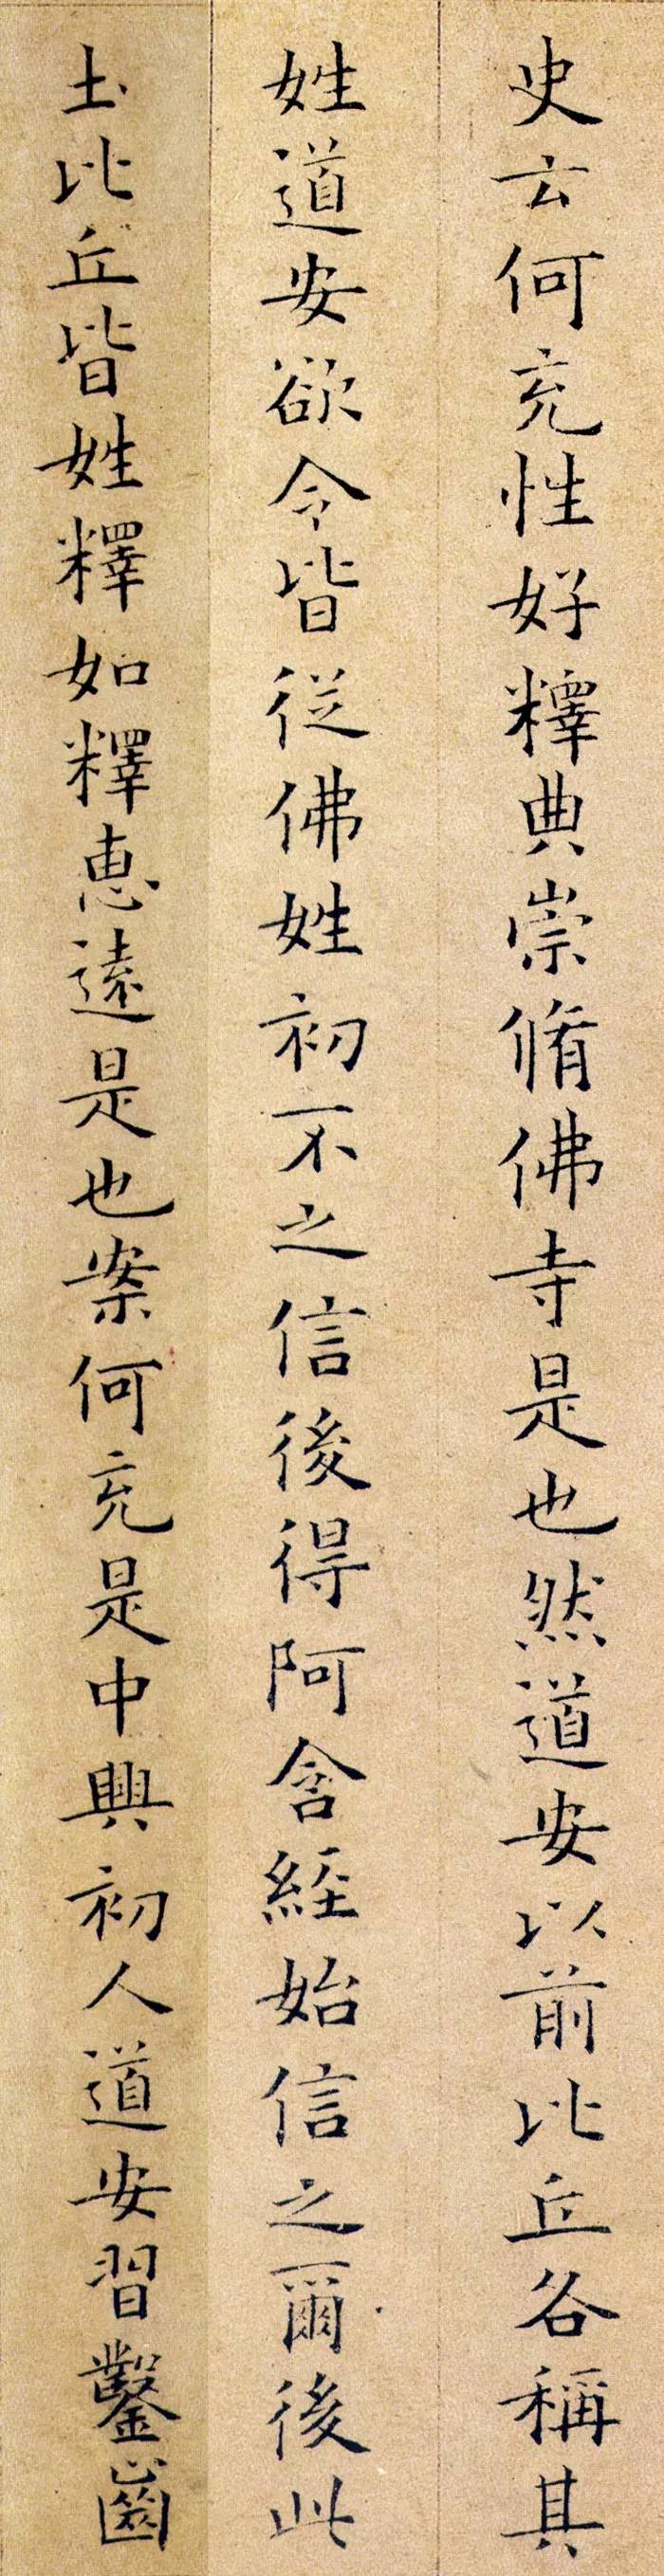 史云何充性好釋典崇脩佛寺是也然道安以前比丘各稱其
姓道安欲令皆從佛姓初不之信後得阿含經始信之爾後此
土比丘皆姓釋如釋惠遠是也案何充是中興初人道安習鑿齒